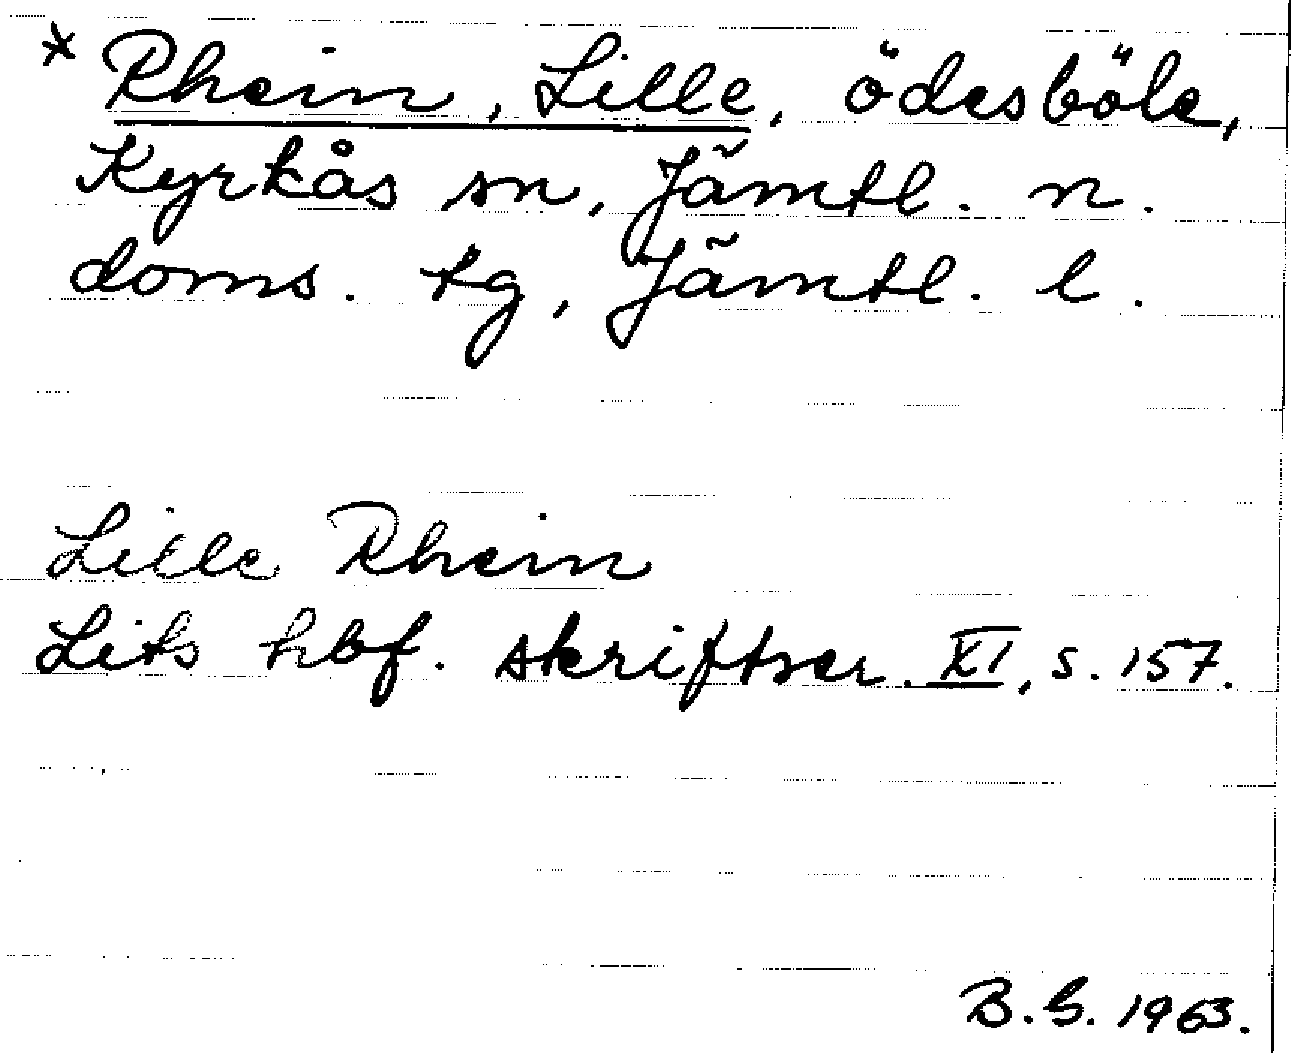 * Rhein, Lille, ödesböle,
Kyrkås sn, Jämtl. n.
doms. tg, Jämtl. l.
Lille Rhein
Lits hbf. skriftser. XI, s. 157.
B.G. 1963.